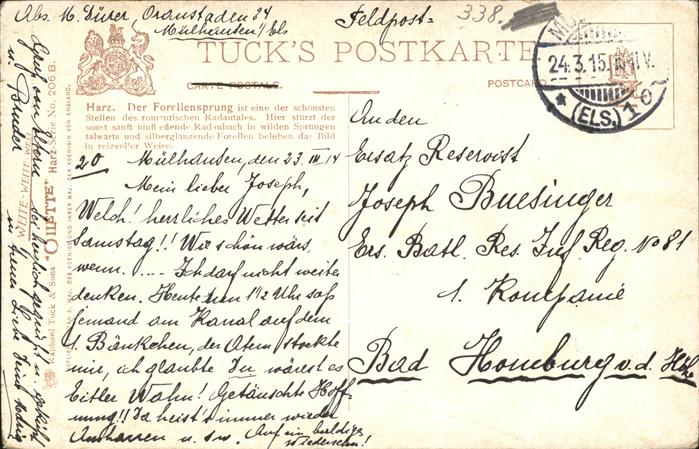 Abs. M. Dürer, Oranstaden 24
Mülhausen i/Els
Feldpost=
338.
TUCK'S POSTKARTE
CARTE POSTALE.
POSTCARD
24.3.15.
(ELS.)
Harz. Der Forellensprung ist eine der schönsten
Stellen des romantischen Radautales. Hier stürzt der
sonst sanft hinfließende Radaubach in wilden Sprüngen
talwärts und silberglänzende Forellen beleben das Bild
in reizvoller Weise.
20 Mülhausen, den 23. III. 14
Mein lieber Joseph,
Welch! herrliches Wetter seit
Samstag!! Wie schön wärs,
wenn. .... Ich darf nicht weiter
denken. Heute um 1 1/2 Uhr saß
jemand am Kanal auf dem
1. Bänkchen, der Atem stockte
mir, ich glaubte Du wärest es
Eitler Wahn! Getäuschte Hoff-
nung!! Da heist's immer wieder
Ausharren u. s. w. Auf ein baldiges
Wiedersehn!
An den
Ersatz Reservist
Joseph Buesinger
Ers. Batl. Res. Inf. Reg. No 81
1. Kompanie
Bad Homburg v. d. Höhe
Raphael Tuck & Sons "OILETTE" Harz-Serie No. 206 B.
herzlich gegrüßt u. geküßt
u. Bruder